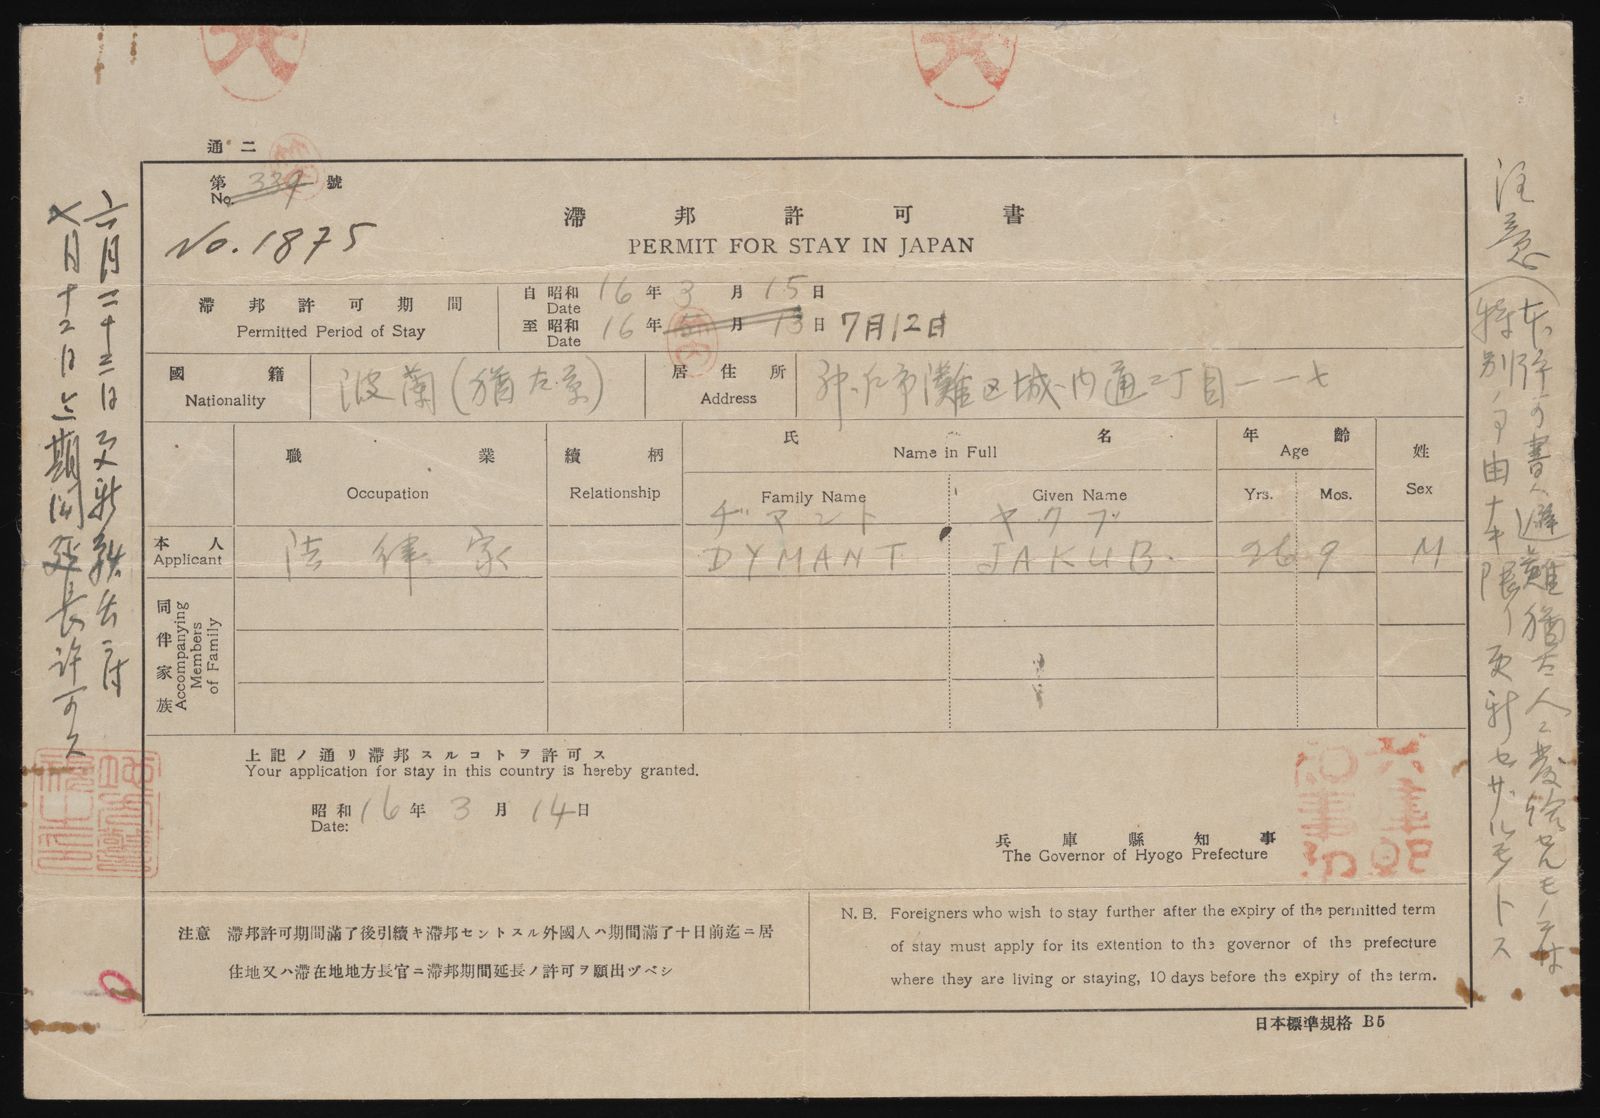 通二
第 339 號
No.
No. 1875
滯邦許可書
PERMIT FOR STAY IN JAPAN
滯邦許可期間
Permitted Period of Stay
自 昭和 16 年 3 月 15 日
Date
至 昭和 16 年 月 13 日 7月12日
Date
國籍
Nationality
波蘭(猶太系)
居住所
Address
神戸市灘区城内通二丁目一一七
職業
Occupation
續柄
Relationship
氏名
Name in Full
Family Name
Given Name
年齡
Age
Yrs.
Mos.
姓
Sex
本人
Applicant
法律家
ヂマント
DYMANT
ヤクブ
JAKUB.
26 9
M
同伴家族
Accompanying
Members
of Family
上記ノ通リ滯邦スルコトヲ許可ス
Your application for stay in this country is hereby granted.
昭和 16 年 3 月 14 日
Date:
兵庫縣知事
The Governor of Hyogo Prefecture
注意 滯邦許可期間滿了後引續キ滯邦セントスル外國人ハ期間滿了十日前迄ニ居
住地又ハ滯在地地方長官ニ滯邦期間延長ノ許可ヲ願出ヅベシ
N.B. Foreigners who wish to stay further after the expiry of the permitted term
of stay must apply for its extention to the governor of the prefecture
where they are living or staying, 10 days before the expiry of the term.
日本標準規格 B5
注意
本許可書ハ避難猶太人ニ發給セルモノニ付
特別ノ事由ナキ限リ更新セザルモノトス
六月二十三日更新願出ニ付
七月十二日迄期間延長許可ス